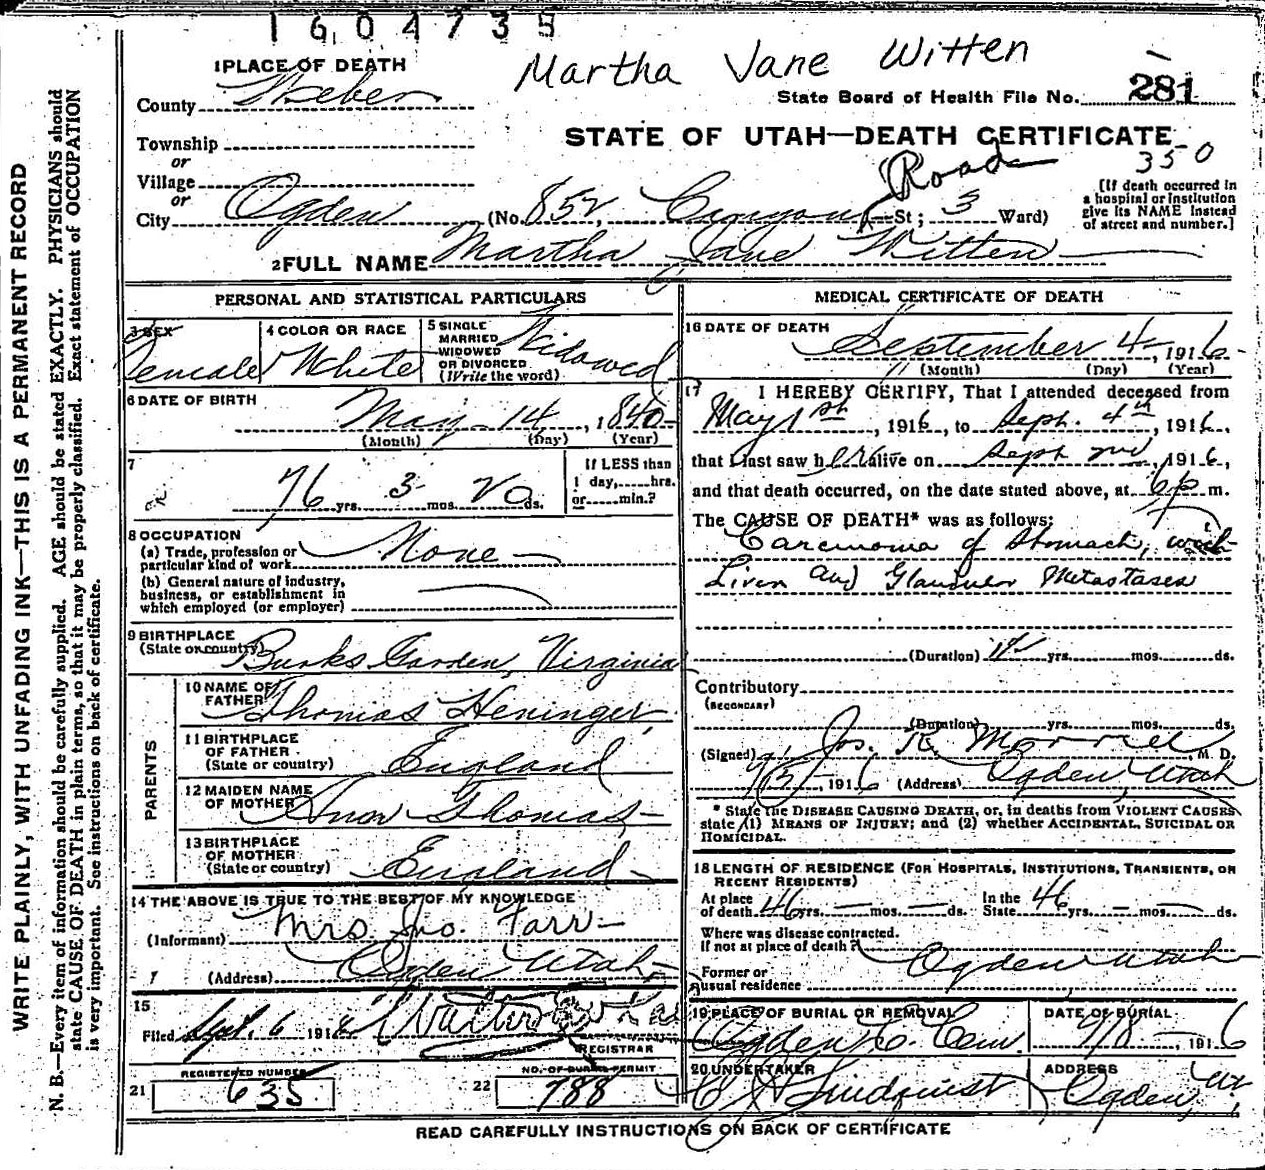 1604735
Martha Jane Witten
1 PLACE OF DEATH
County Weber
State Board of Health File No. 281
Township
or
Village
or
STATE OF UTAH—DEATH CERTIFICATE
350
City Ogden (No. 852, Canyon Road St; 3 Ward)
[If death occurred in a hospital or institution give its NAME instead of street and number.]
2 FULL NAME Martha Jane Witten
PERSONAL AND STATISTICAL PARTICULARS
3 SEX Female
4 COLOR OR RACE White
5 SINGLE MARRIED WIDOWED OR DIVORCED (Write the word) Widowed
6 DATE OF BIRTH
May 14, 1840
(Month) (Day) (Year)
7
76 yrs. 3 mos. 20 ds.
If LESS than 1 day, hrs. or min.?
8 OCCUPATION
(a) Trade, profession or particular kind of work None
(b) General nature of industry, business, or establishment in which employed (or employer)
9 BIRTHPLACE (State or country) Burks Garden, Virginia
PARENTS
10 NAME OF FATHER Thomas Heninger
11 BIRTHPLACE OF FATHER (State or country) England
12 MAIDEN NAME OF MOTHER Thomas
13 BIRTHPLACE OF MOTHER (State or country) England
14 THE ABOVE IS TRUE TO THE BEST OF MY KNOWLEDGE
(Informant) Mrs. Jno. Farr
(Address) Ogden Utah
15
Filed Sept. 6 191 Walter
REGISTRAR
21 REGISTERED NUMBER 635
22 NO. OF BURIAL PERMIT 788
MEDICAL CERTIFICATE OF DEATH
16 DATE OF DEATH
September 4, 1916
(Month) (Day) (Year)
17 I HEREBY CERTIFY, That I attended deceased from
May 1st, 1916, to Sept. 4th, 1916,
that I last saw her alive on Sept 2nd, 1916,
and that death occurred, on the date stated above, at 6 p m.
The CAUSE OF DEATH* was as follows:
Carcinoma of Stomach, with
Liver and Glandular Metastases
(Duration) yrs. mos. ds.
Contributory
(SECONDARY)
(Duration) yrs. mos. ds.
(Signed) Jos. R. Morrell M. D.
9/5/, 1916 (Address) Ogden, Utah
* State the DISEASE CAUSING DEATH, or, in deaths from VIOLENT CAUSES, state (1) MEANS OF INJURY; and (2) whether ACCIDENTAL, SUICIDAL OR HOMICIDAL.
18 LENGTH OF RESIDENCE (FOR HOSPITALS, INSTITUTIONS, TRANSIENTS, OR RECENT RESIDENTS)
At place of death 46 yrs. — mos. — ds. In the State 46 yrs. — mos. — ds.
Where was disease contracted.
If not at place of death? Ogden Utah
Former or usual residence
19 PLACE OF BURIAL OR REMOVAL Ogden C. Cem.
DATE OF BURIAL 9/8 1916
20 UNDERTAKER Lindquist
ADDRESS Ogden, Ut.
READ CAREFULLY INSTRUCTIONS ON BACK OF CERTIFICATE
WRITE PLAINLY, WITH UNFADING INK—THIS IS A PERMANENT RECORD
N. B.—Every item of information should be carefully supplied. AGE should be stated EXACTLY. PHYSICIANS should
state CAUSE OF DEATH in plain terms, so that it may be properly classified. Exact statement of OCCUPATION
is very important. See instructions on back of certificate.